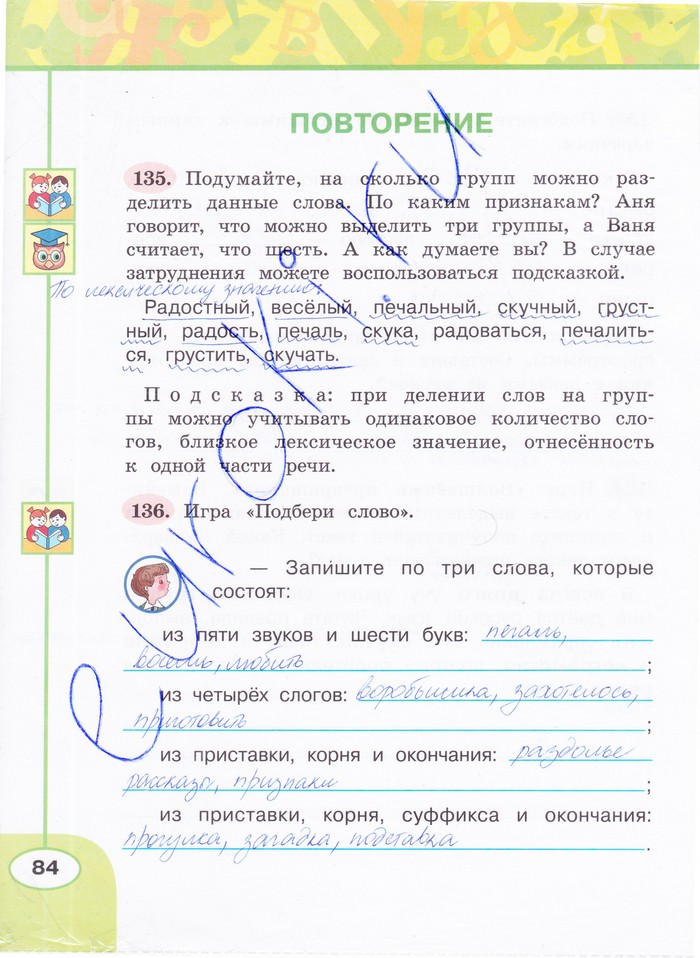 ПОВТОРЕНИЕ
135. Подумайте, на сколько групп можно раз-
делить данные слова. По каким признакам? Аня
говорит, что можно выделить три группы, а Ваня
считает, что шесть. А как думаете вы? В случае
затруднения можете воспользоваться подсказкой.
По лексическому значению:
Радостный, весёлый, печальный, скучный, груст-
ный, радость, печаль, скука, радоваться, печалить-
ся, грустить, скучать.
Подсказка: при делении слов на груп-
пы можно учитывать одинаковое количество сло-
гов, близкое лексическое значение, отнесённость
к одной части речи.
136. Игра «Подбери слово».
— Запишите по три слова, которые
состоят:
из пяти звуков и шести букв: печаль,
восемь, любить ;
из четырёх слогов: воробьишка, захотелось,
приготовить ;
из приставки, корня и окончания: раздолье
рассказы, признаки ;
из приставки, корня, суффикса и окончания:
прогулка, загадка, подставка .
84